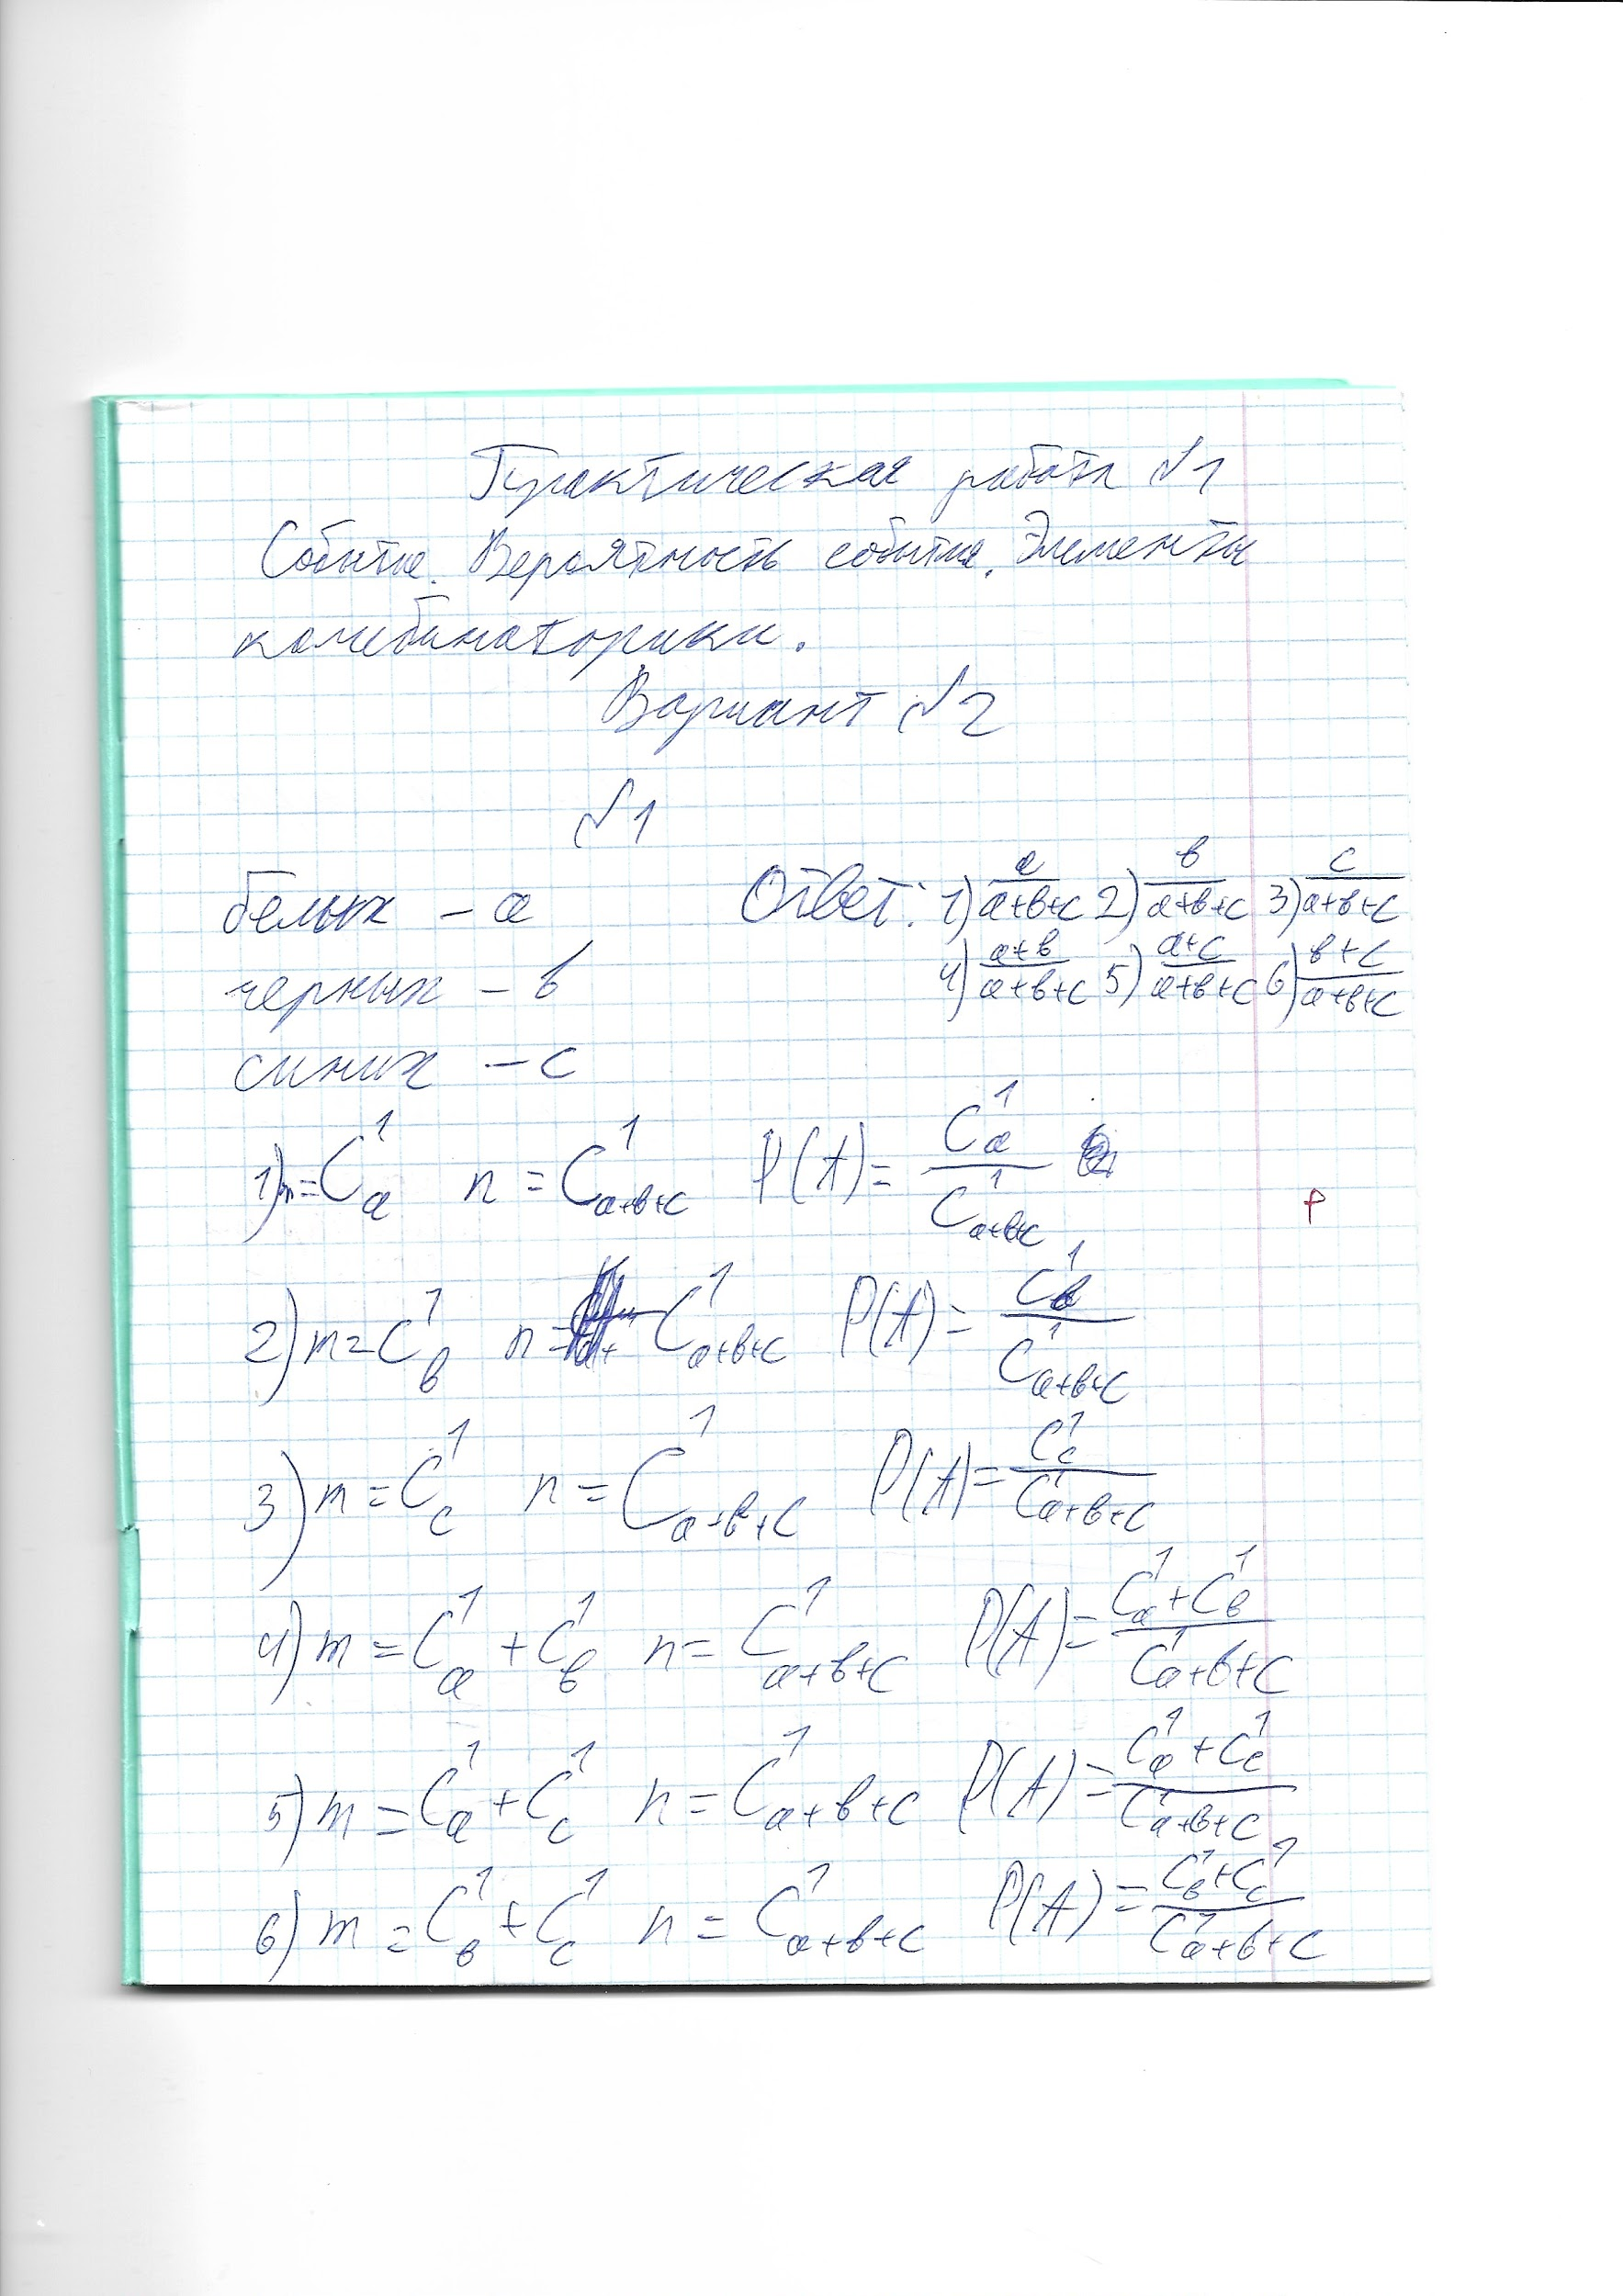 Практическая работа №1
Событие. Вероятность события. Элементы
комбинаторики.
Вариант №2
№1
белых – a
черных – в
синих – c
Ответ: 1) a/(a+в+c) 2) в/(a+в+c) 3) c/(a+в+c)
4) (a+в)/(a+в+c) 5) (a+c)/(a+в+c) 6) (в+c)/(a+в+c)
1) m = C_a^1 n = C_{a+в+c}^1 P(A) = C_a^1/C_{a+в+c}^1
2) m = C_в^1 n = C_{a+в+c}^1 P(A) = C_в^1/C_{a+в+c}^1
3) m = C_c^1 n = C_{a+в+c}^1 P(A) = C_c^1/C_{a+в+c}^1
4) m = C_a^1 + C_в^1 n = C_{a+в+c}^1 P(A) = (C_a^1 + C_в^1)/C_{a+в+c}^1
5) m = C_a^1 + C_c^1 n = C_{a+в+c}^1 P(A) = (C_a^1 + C_c^1)/C_{a+в+c}^1
6) m = C_в^1 + C_c^1 n = C_{a+в+c}^1 P(A) = (C_в^1 + C_c^1)/C_{a+в+c}^1